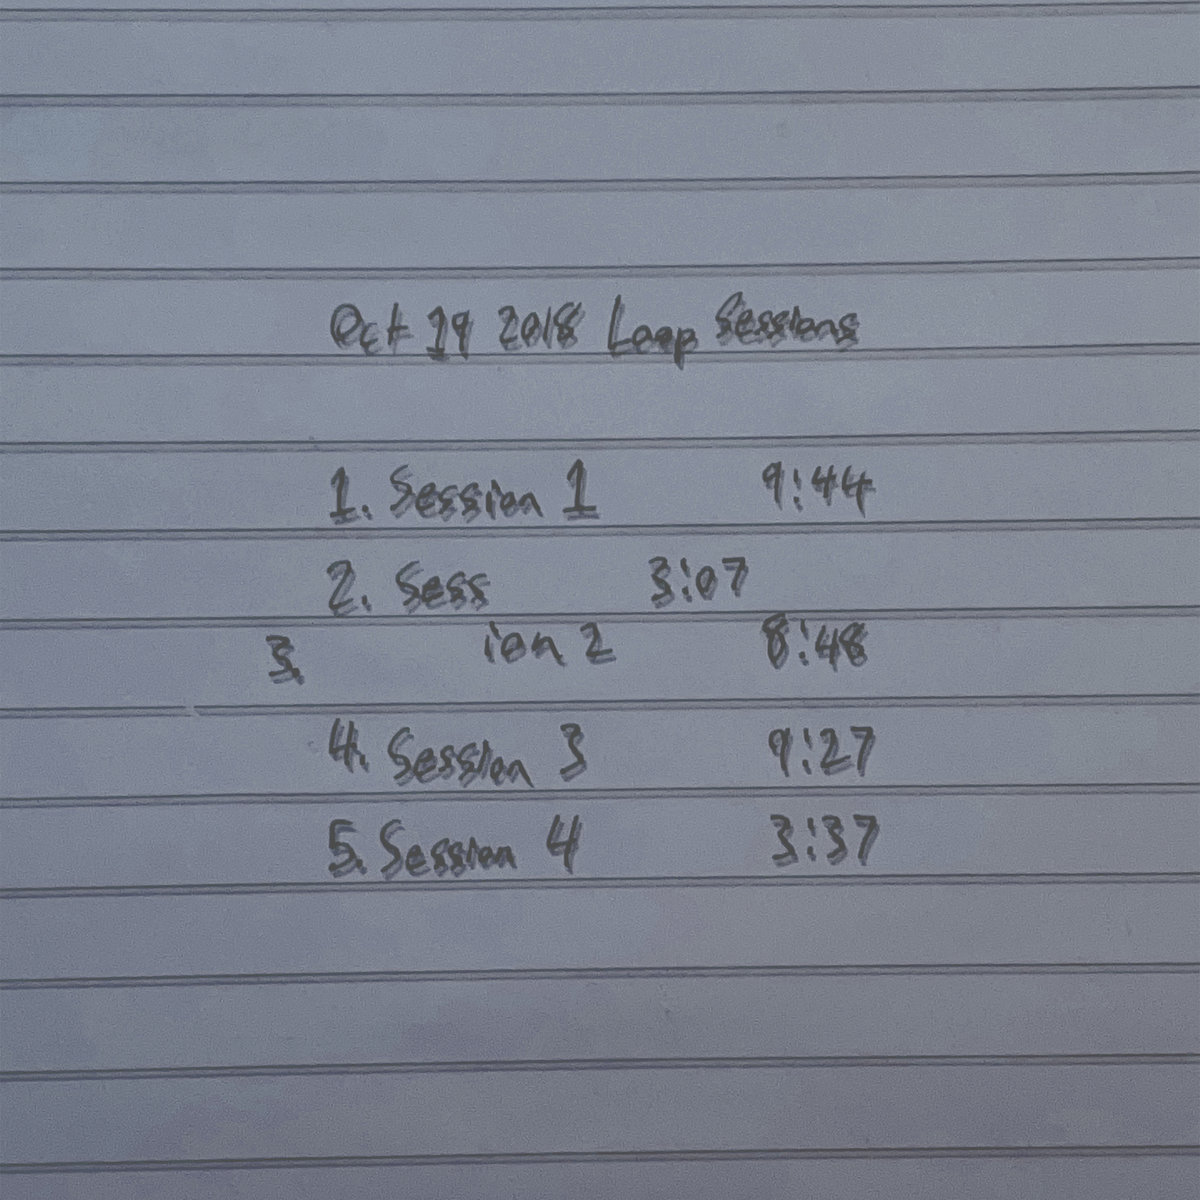 Oct 19 2018 Loop Sessions
1. Session 1 9:44
2. Sess 3:07
3. ion 2 8:48
4. Session 3 9:27
5. Session 4 3:37